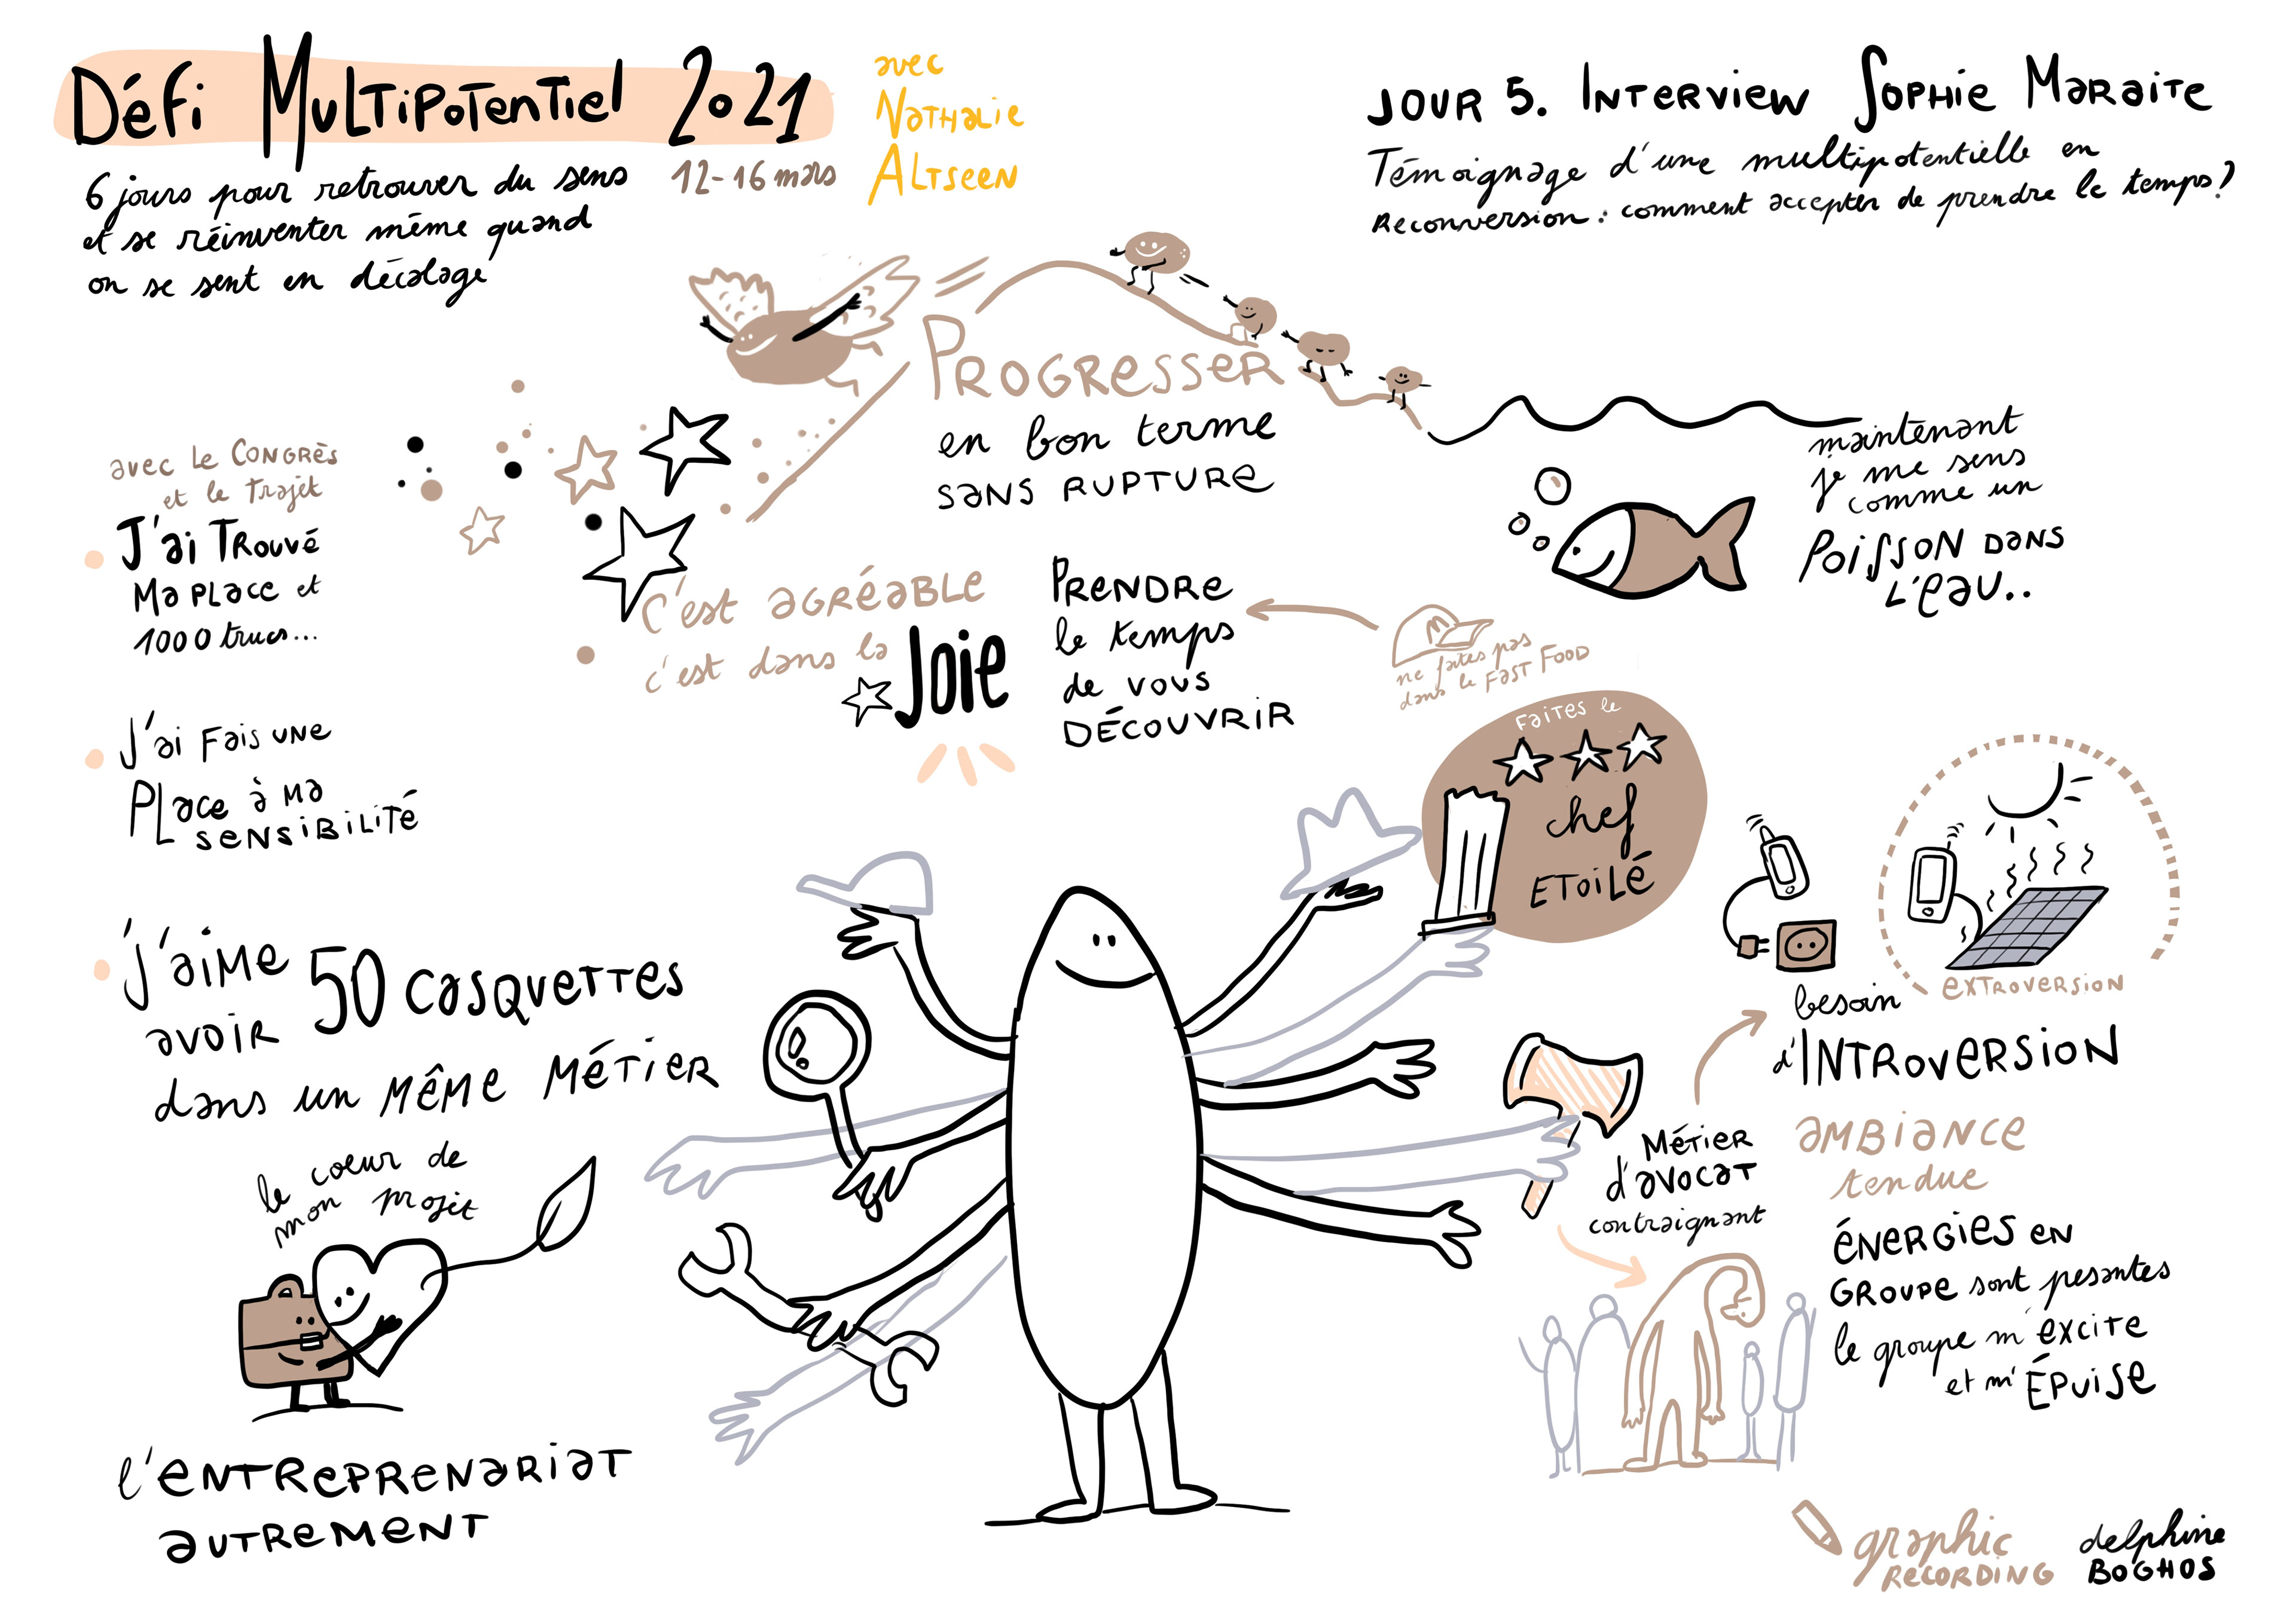 Défi Multipotentiel 2021
12-16 mars
avec
Nathalie
Altseen
6 jours pour retrouver du sens
et se réinventer même quand
on se sent en décalage
Jour 5. Interview Sophie Maraite
Témoignage d'une multipotentielle en
Reconversion : comment accepter de prendre le temps ?
Progresser
en bon terme
sans rupture
maintenant
je me sens
comme un
Poisson dans
l'eau..
avec le Congrès
et le Trajet
J'ai Trouvé
Ma place et
1000 trucs...
C'est agréable
c'est dans la
Joie
Prendre
le temps
de vous
Découvrir
ne faites pas
dans le Fast Food
Faites le
chef
Etoilé
J'ai fais une
Place à ma
sensibilité
J'aime
avoir 50 casquettes
dans un même métier
le coeur de
mon projet
l'entreprenariat
autrement
extroversion
besoin
d'Introversion
Métier
d'avocat
contraignant
ambiance
tendue
énergies en
groupe sont pesantes
le groupe m'excite
et m'Épuise
graphic
recording
delphine
Boghos